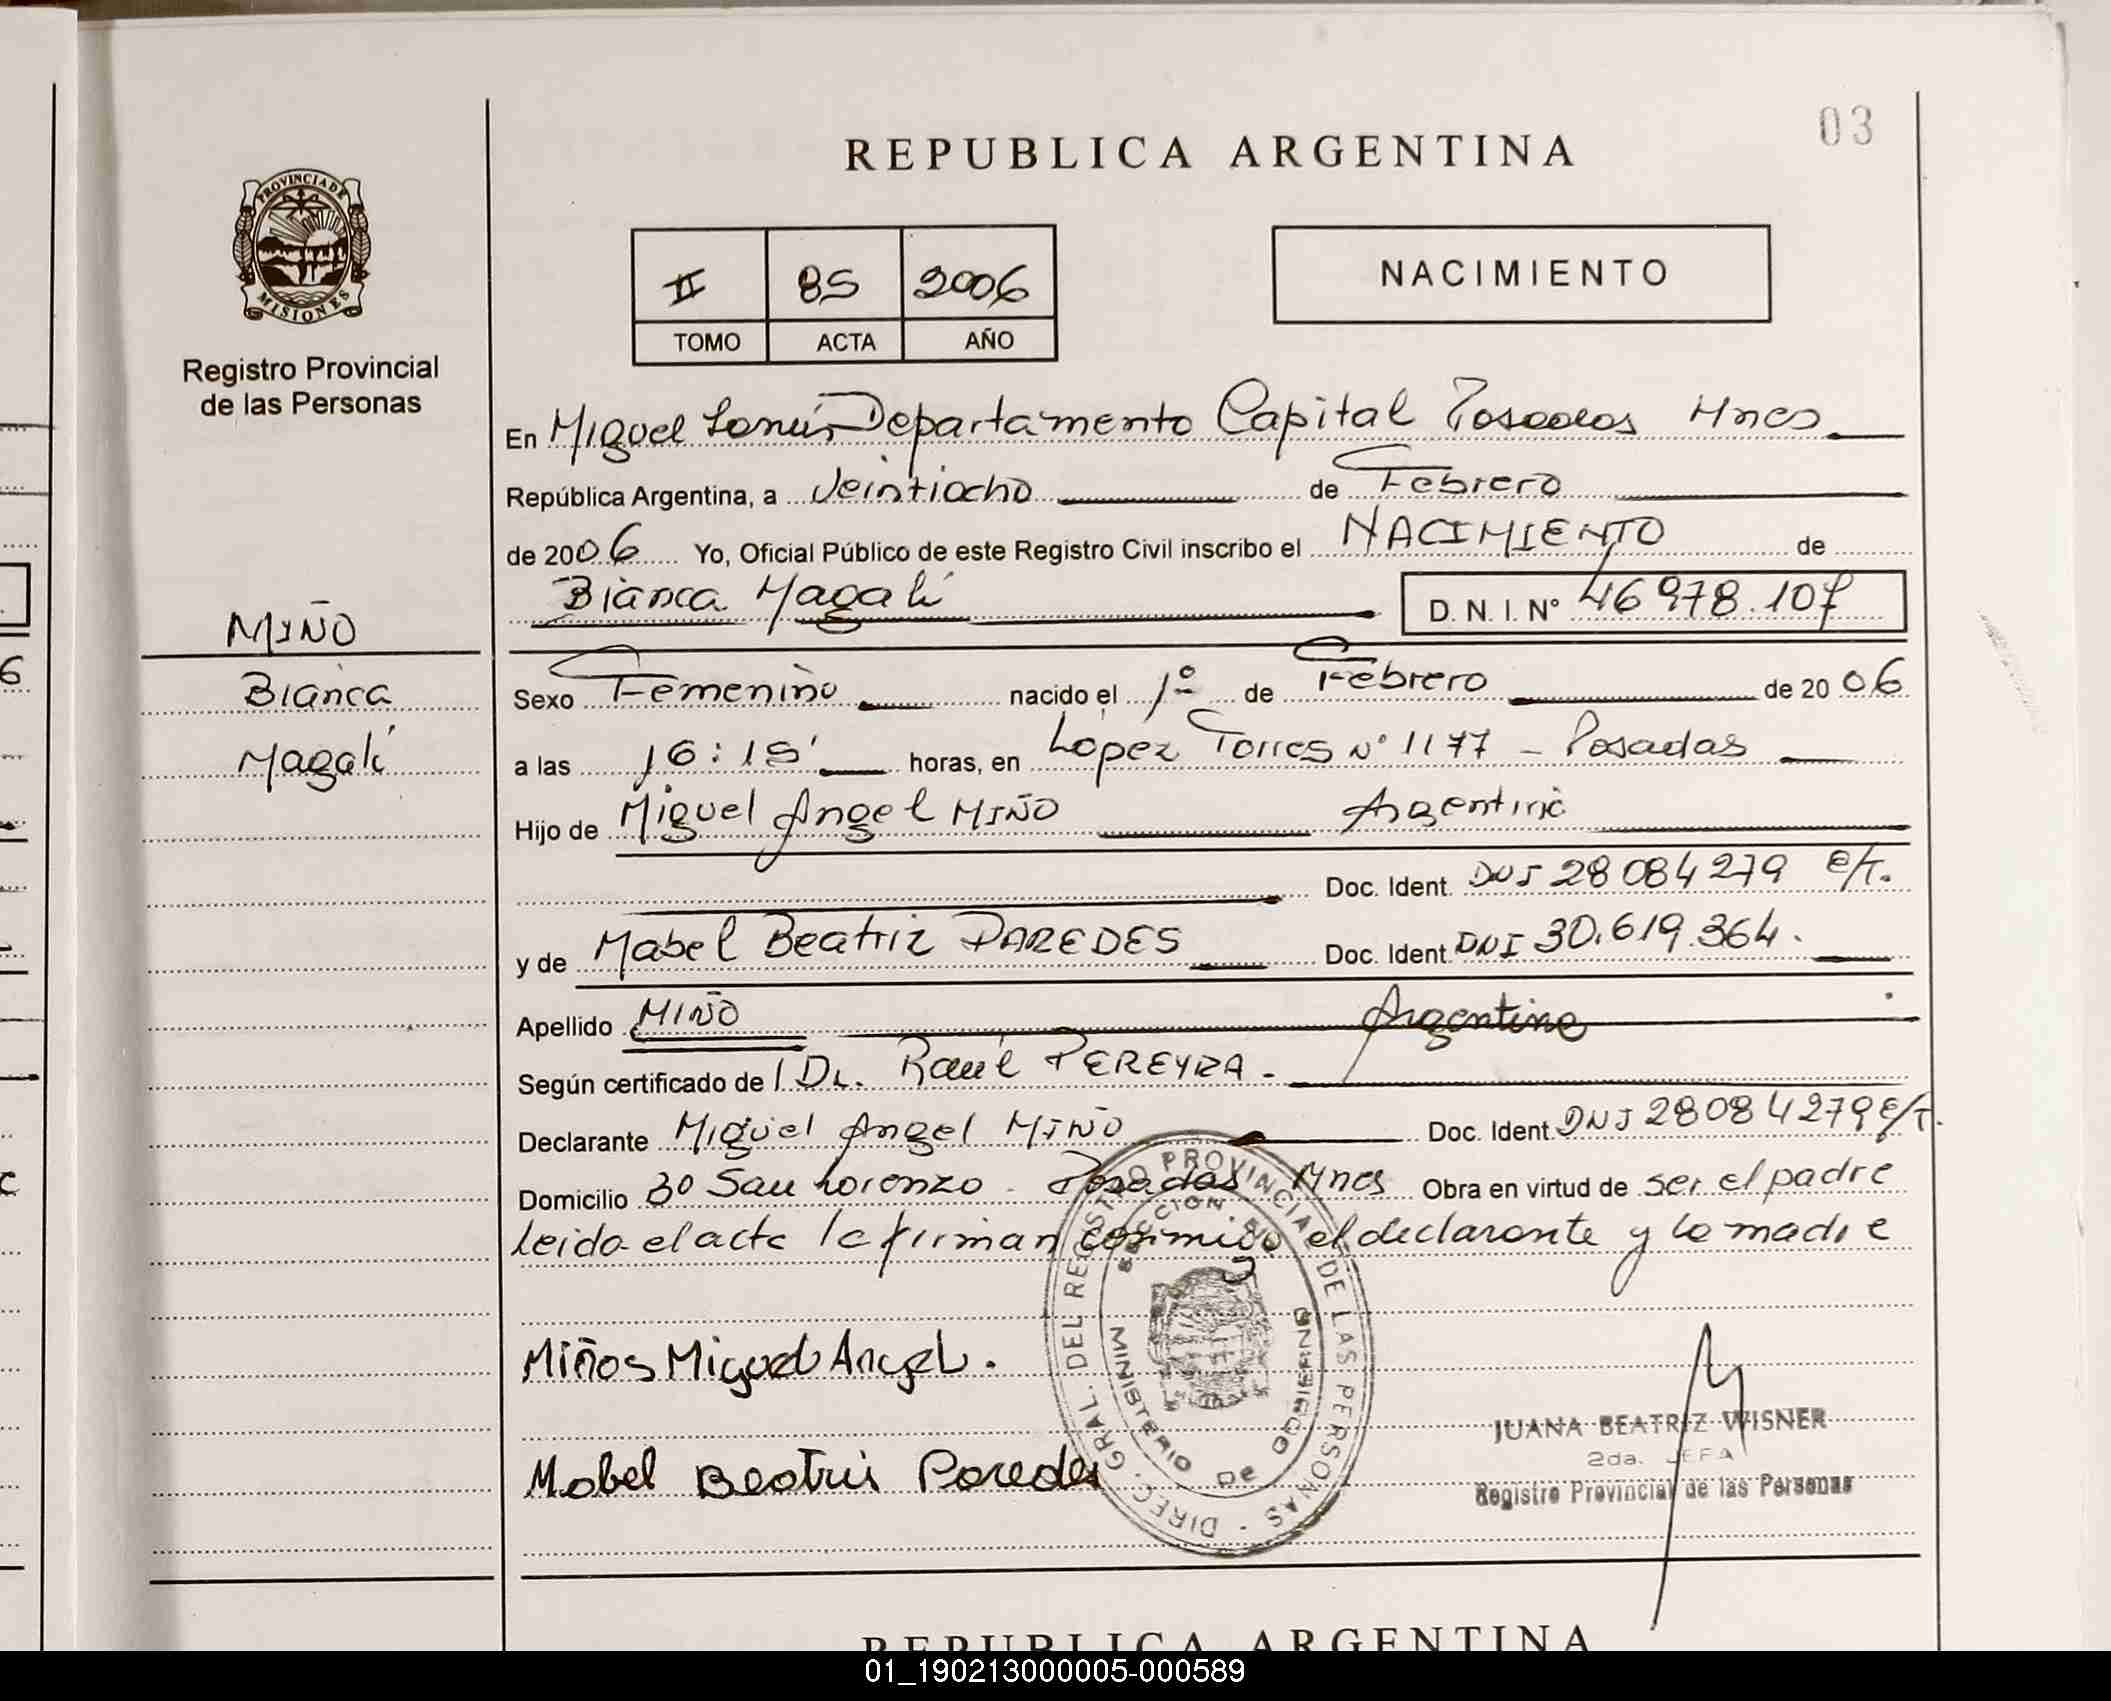 03
REPUBLICA ARGENTINA
PROVINCIA DE
MISIONES
Registro Provincial
de las Personas
II 85 2006
TOMO ACTA AÑO
NACIMIENTO
En Miguel Lanús Departamento Capital Posadas Mnes
República Argentina, a Veintiocho de Febrero
de 2006 Yo, Oficial Público de este Registro Civil inscribo el NACIMIENTO de
Bianca Magalí D. N. I. Nº 46978.107
MIÑO
Bianca
Magalí
Sexo Femenino nacido el 1º de Febrero de 2006
a las 16:15' horas, en López Torres Nº 1177 - Posadas
Hijo de Miguel Angel MIÑO Argentino
Doc. Ident. DNI 28084279 E/T.
y de Mabel Beatriz PAREDES Doc. Ident. DNI 30.619.364.
Apellido MIÑO Argentina
Según certificado de Dr. Raúl PEREYRA -
Declarante Miguel Angel MIÑO Doc. Ident. DNI 28084279 E/T.
Domicilio 30 San Lorenzo - Posadas Mnes Obra en virtud de ser el padre
leida el acta la firman conmigo el declarante y la madre
Miños Miguel Angel.
Mabel Beatris Paredes
DIREC. GRAL. DEL REGISTRO PROVINCIAL DE LAS PERSONAS
MINISTERIO DE GOBIERNO
JUANA BEATRIZ WISNER
2da. JEFA
Registro Provincial de las Personas
REPUBLICA ARGENTINA
01_190213000005-000589